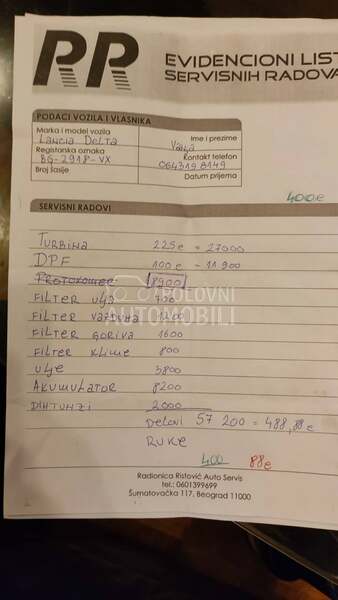 RR
EVIDENCIONI LIST
SERVISNIH RADOVA
PODACI VOZILA I VLASNIKA
Marka i model vozila
Lancia Delta
Ime i prezime
Vanja
Registarska oznaka
BG-2918-VX
Kontakt telefon
0643198149
Broj šasije
Datum prijema
400e
SERVISNI RADOVI
TURBINA 225e = 27000
DPF 100e = 11.900
PROTOKOMER 8900
FILTER ULJA 700
FILTER VAZDUHA 1200
FILTER GORIVA 1600
FILTER KLIME 800
ULJE 3800
AKUMULATOR 8200
DIHTUNZI 2000
DELOVI 57 200 = 488,88e
RUKE
400 88e
POLOVNI
AUTOMOBILI
Radionica Ristović Auto Servis
tel.: 0601399699
Šumatovačka 117, Beograd 11000